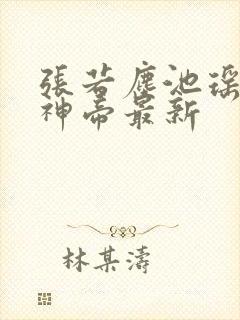 張若塵池瑤
神帝最新
林某濤